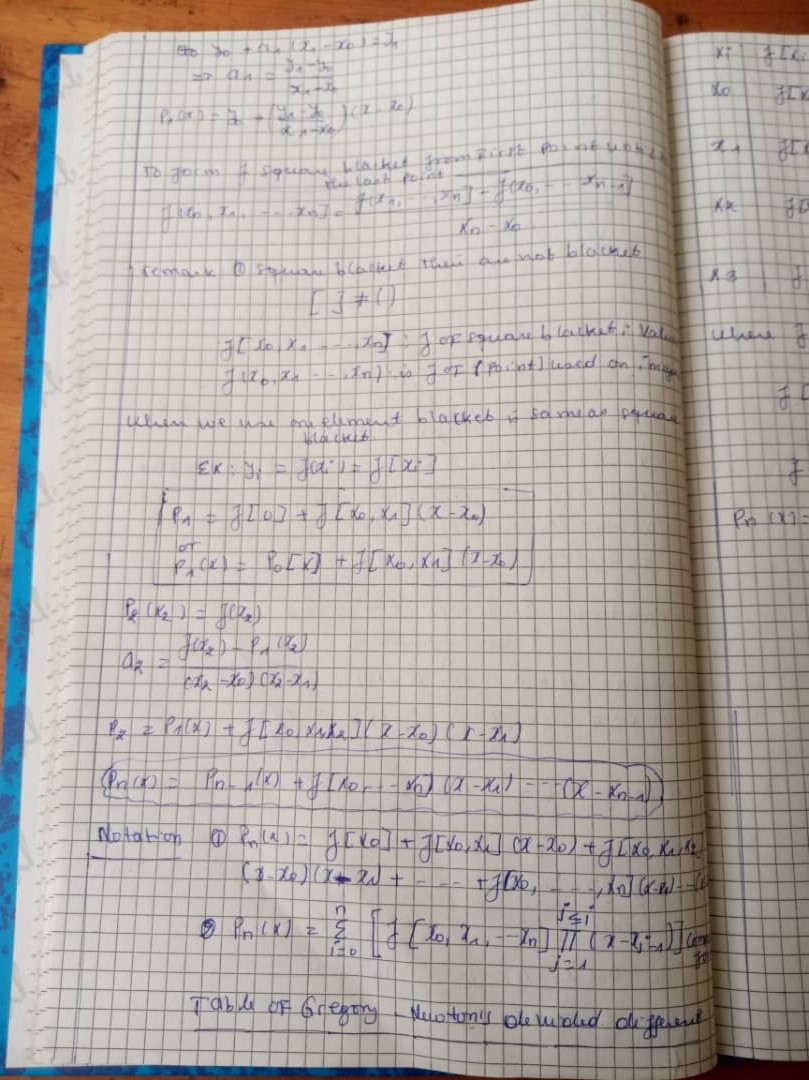 y₀ + a₁(x₁ - x₀) = y₁
⇒ a₁ = (y₁ - y₀)/(x₁ - x₀)
P₁(x) = y₀ + ((y₁ - y₀)/(x₁ - x₀))(x - x₀)
To form f square blacket from First Point until
the last point
f[x₀, x₁, ---, xₙ] = (f[x₁, ---, xₙ] - f[x₀, --- xₙ₋₁])/(xₙ - x₀)
remark ① square blacket then are not blacket
[ ] ≠ ( )
f[x₀, x₁, ---, xₙ] : f of square blacket : Value
f(x₀, x₁ ---, xₙ) is f of (Point) used on image
When we use one element blacket is same as square
blacket
Ex: yᵢ = f(xᵢ) = f[xᵢ]
P₁ = f[0] + f[x₀, x₁](x - x₀)
or
P₁(x) = P₀[x] + f[x₀, x₁](x - x₀)
P₂(x₂) = f(x₂)
a₂ = (f(x₂) - P₁(x₂))/((x₂ - x₀)(x₂ - x₁))
P₂ = P₁(x) + f[x₀, x₁, x₂](x - x₀)(x - x₁)
Pₙ(x) = Pₙ₋₁(x) + f[x₀, --- xₙ](x - x₁) ---- (x - xₙ₋₁)
Notation ① Pₙ(x) = f[x₀] + f[x₀, x₁](x - x₀) + f[x₀, x₁, x₂]
(x - x₀)(x - x₁) + --- --- + f[x₀, ----, xₙ](x - x₀) ---
② Pₙ(x) = ∑ᵢ₌₀ⁿ [f[x₀, x₁, --- xₙ] ∏ⱼ₌₁^(j≤i) (x - xⱼ₋₁)]
Table of Gregory - Newton's devided different
xᵢ f[xᵢ
x₀ f[x
x₁ f[x
x₂ f[
x₃ f
When f
f[
f
Pₙ(x) =